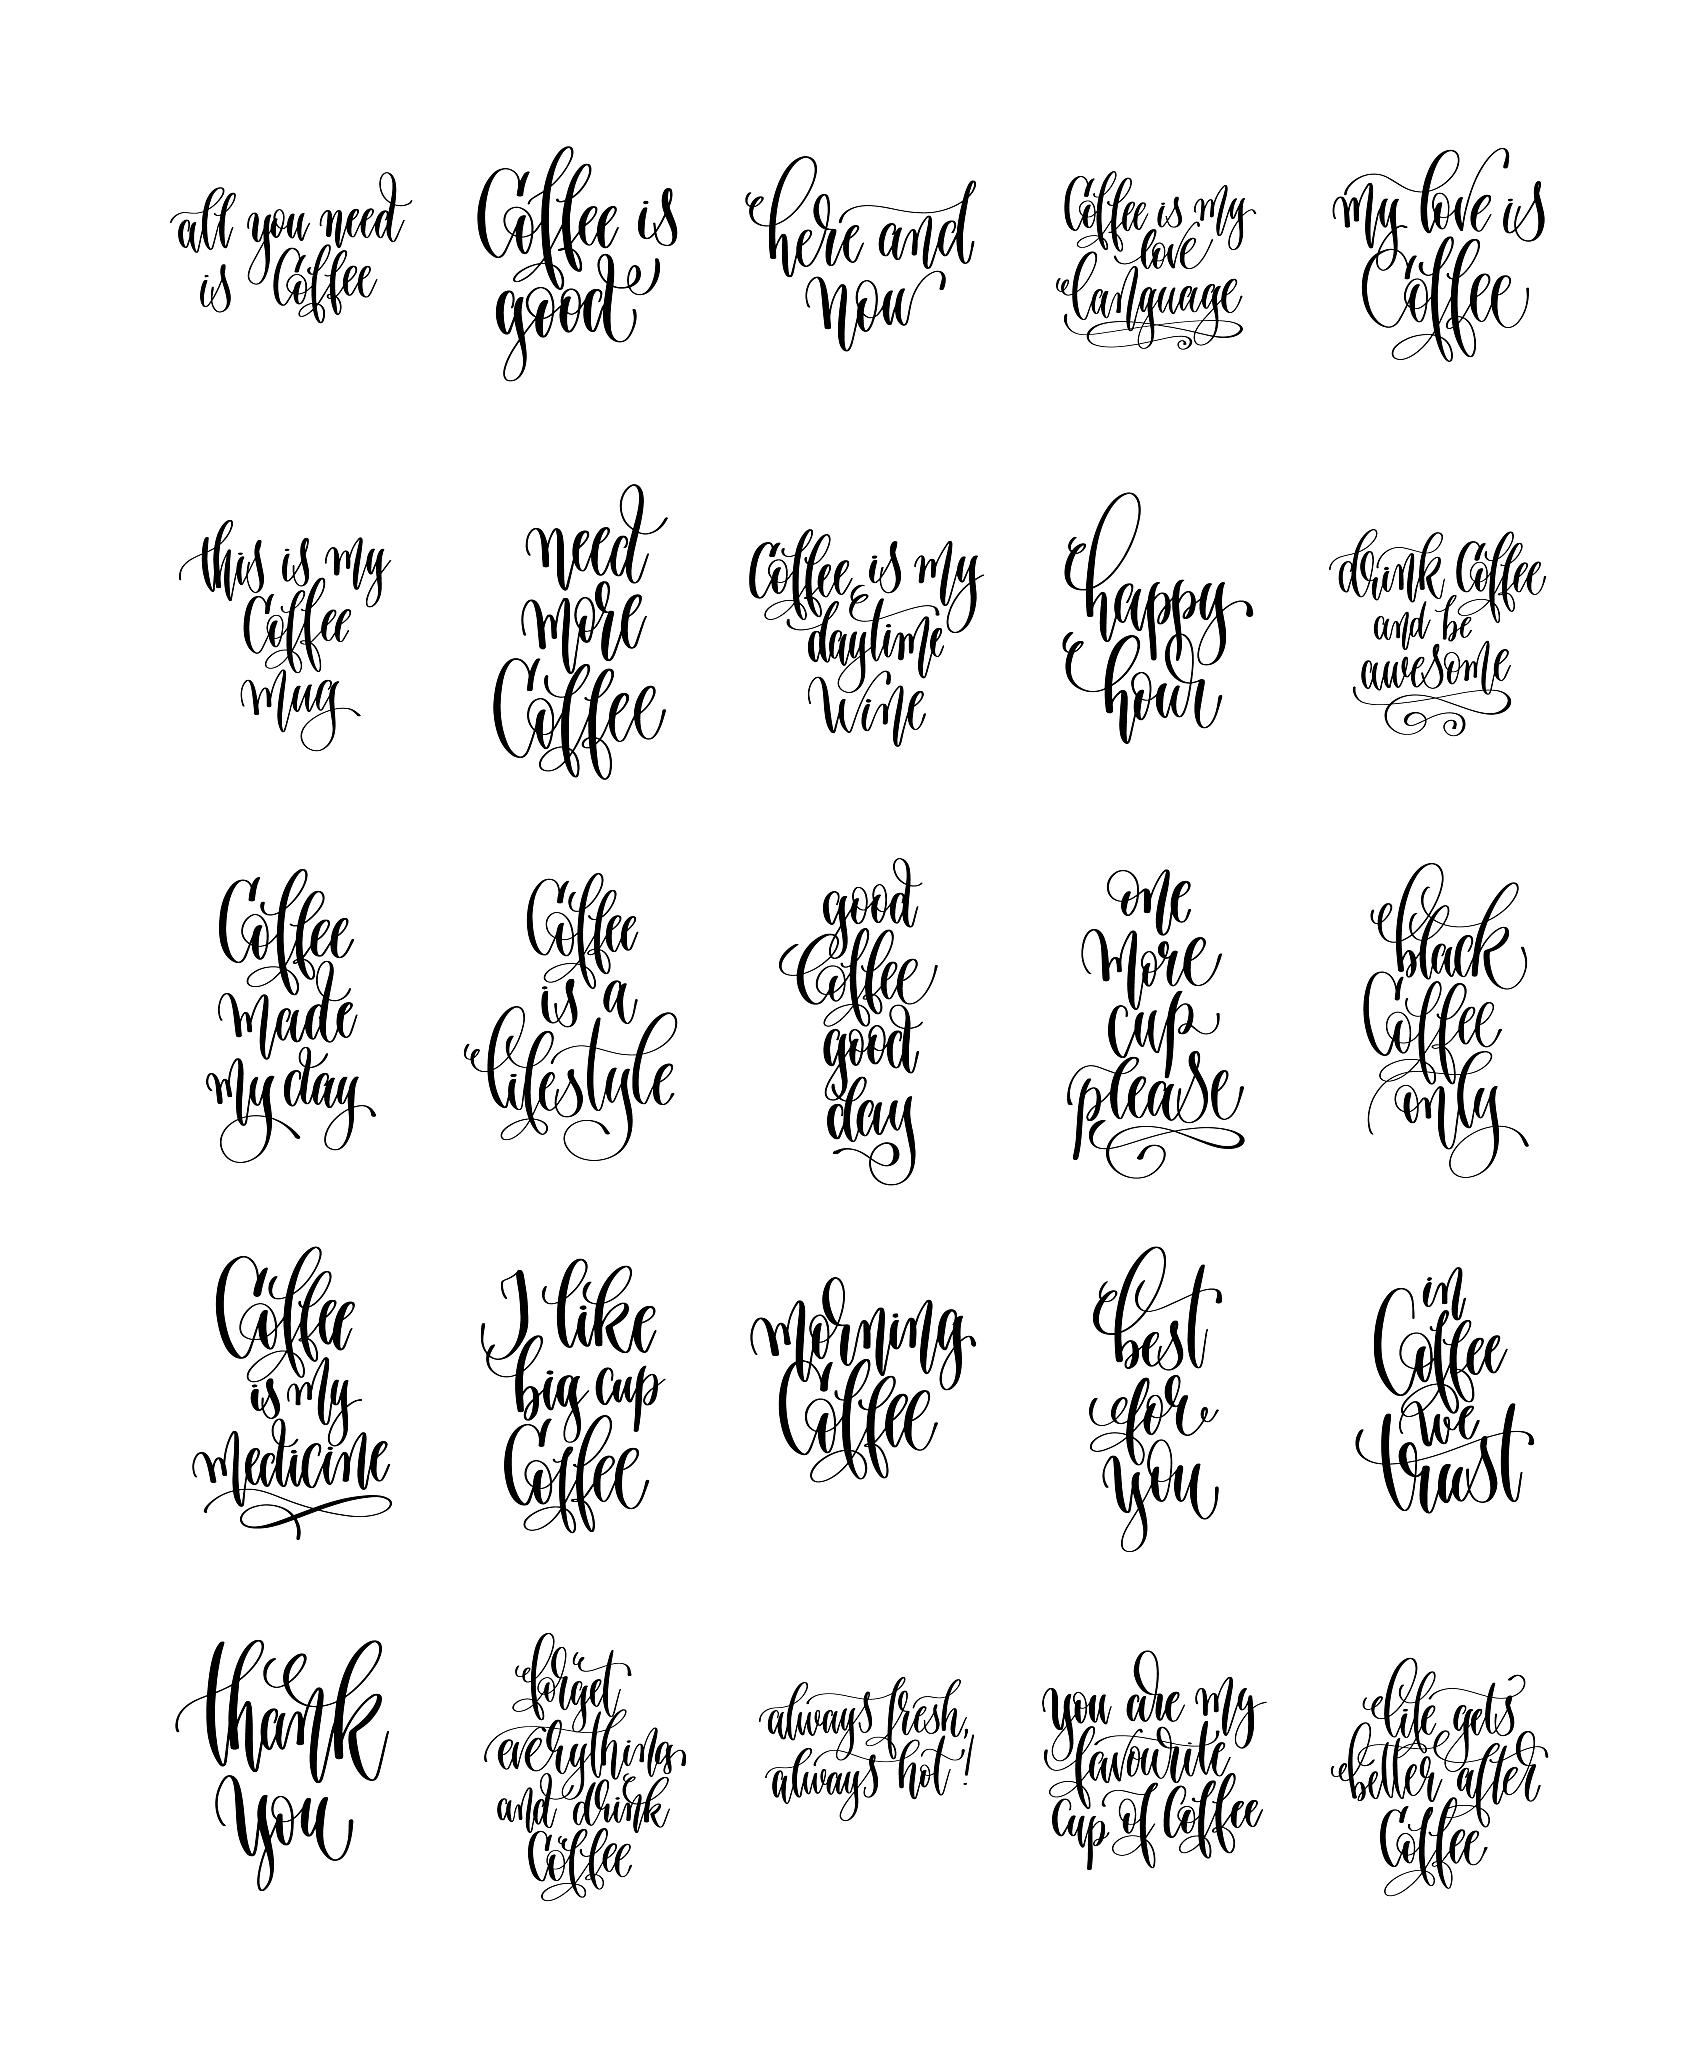 all you need
is Coffee
Coffee is
good
here and
now
Coffee is my
love
language
my love is
Coffee
this is my
Coffee
mug
need
more
Coffee
Coffee is my
daytime
wine
happy
hour
drink Coffee
and be
awesome
Coffee
made
my day
Coffee
is a
lifestyle
good
Coffee
good
day
one
more
cup
please
black
Coffee
only
Coffee
is my
medicine
I like
big cup
Coffee
morning
Coffee
best
for
you
in
Coffee
we
trust
thank
you
forget
everything
and drink
Coffee
always fresh,
always hot!
you are my
favourite
cup of Coffee
life gets
better after
Coffee